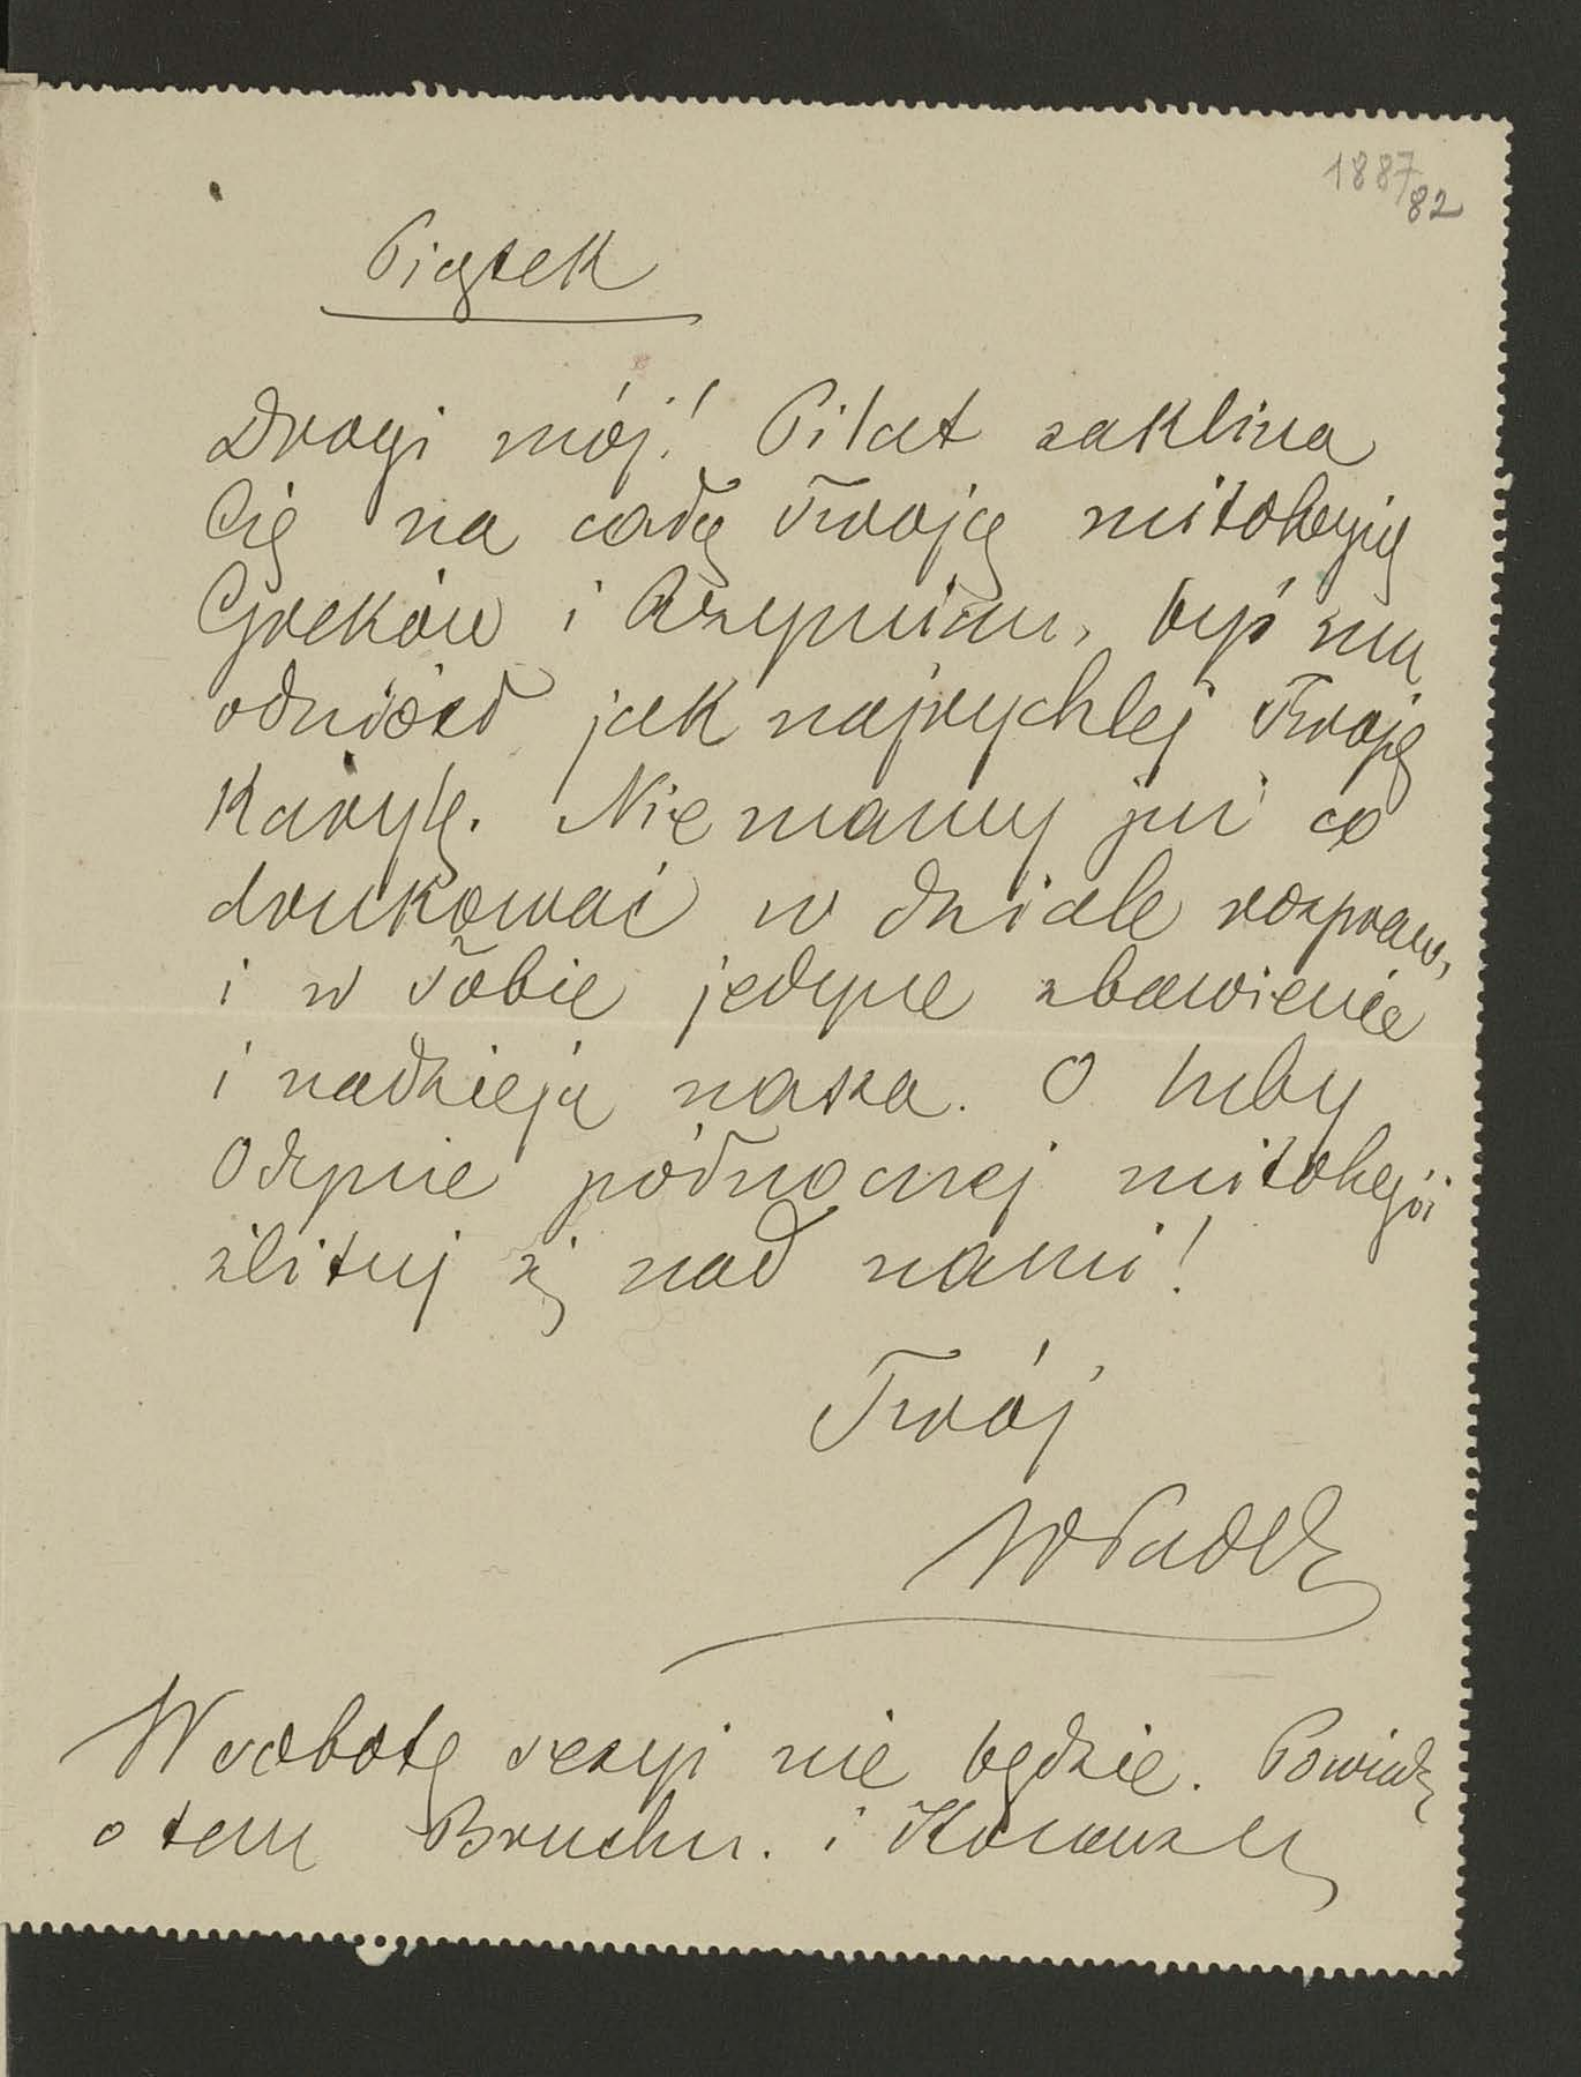 1887/82
Piątek
Drogi mój! Pilat zaklina
Cię na całą Twoją mitologię
Greków i Rzymian, byś mu
odniósł jak najrychlej Twoję
Karyłę. Nie mamy już co
drukować w dziale rozpraw,
i w Tobie jedyne zbawienie
i nadzieja nasza. O luby
Odynie północnej mitologii
zlituj się nad nami!
Twój
W sobotę sesyi nie będzie. Powiedz
o tem Bruchn. i